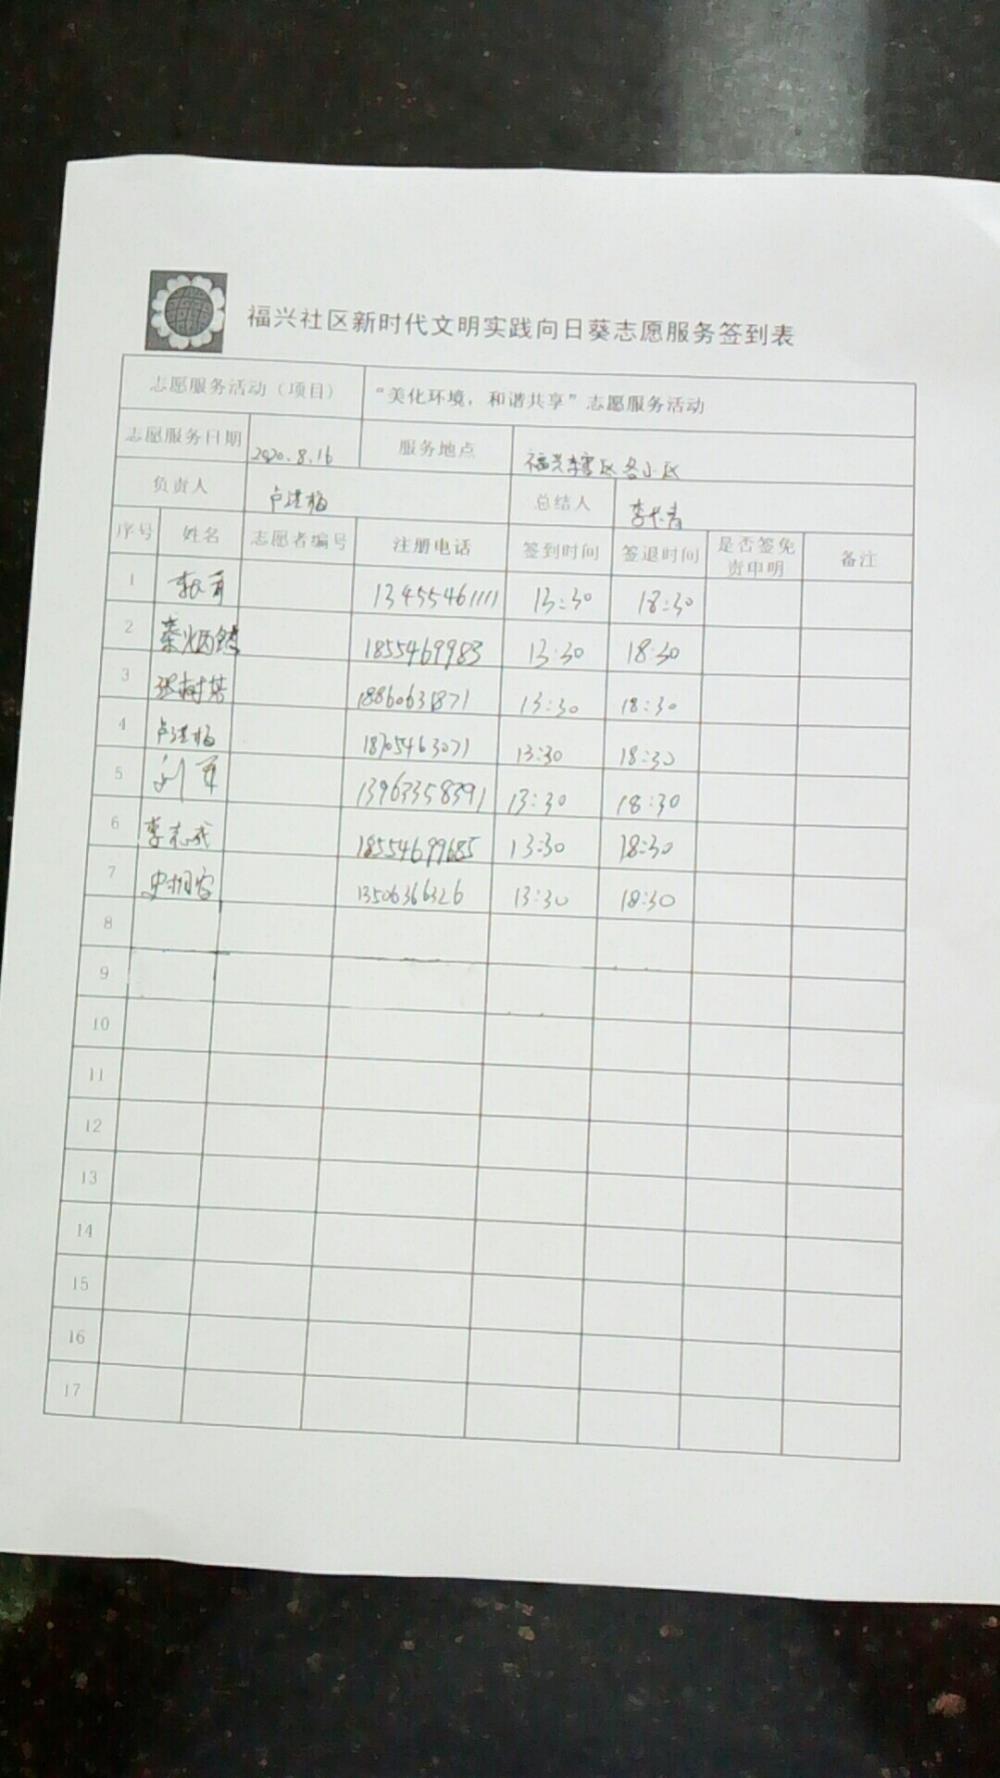 福兴社区新时代文明实践向日葵志愿服务签到表
志愿服务活动（项目） “美化环境，和谐共享”志愿服务活动
志愿服务日期 2020.8.16 服务地点 福兴辖区各小区
负责人 卢洪梅 总结人 李长青
序号 姓名 志愿者编号 注册电话 签到时间 签退时间 是否签免责申明 备注
1 13455461111 13:30 18:30
2 1855469983 13:30 18:30
3 张树 18860631871 13:30 18:30
4 卢洪梅 18705463071 13:30 18:30
5 刘军 13963358391 13:30 18:30
6 李志成 18554699685 13:30 18:30
7 13506366326 13:30 18:30
8
9
10
11
12
13
14
15
16
17